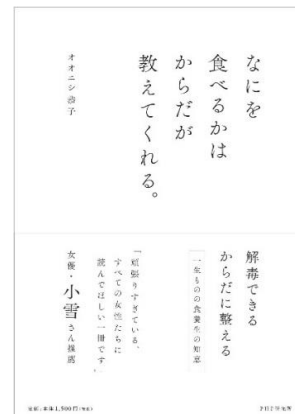 なにを
食べるかは
からだが
教えてくれる。
オオニシ恭子
解毒できる
からだに整える
一生ものの食養生の知恵
「頑張りすぎている、
すべての女性たちに
読んでほしい一冊です」
女優・小雪さん推薦
定価:本体1,500円(税別)
PHP研究所